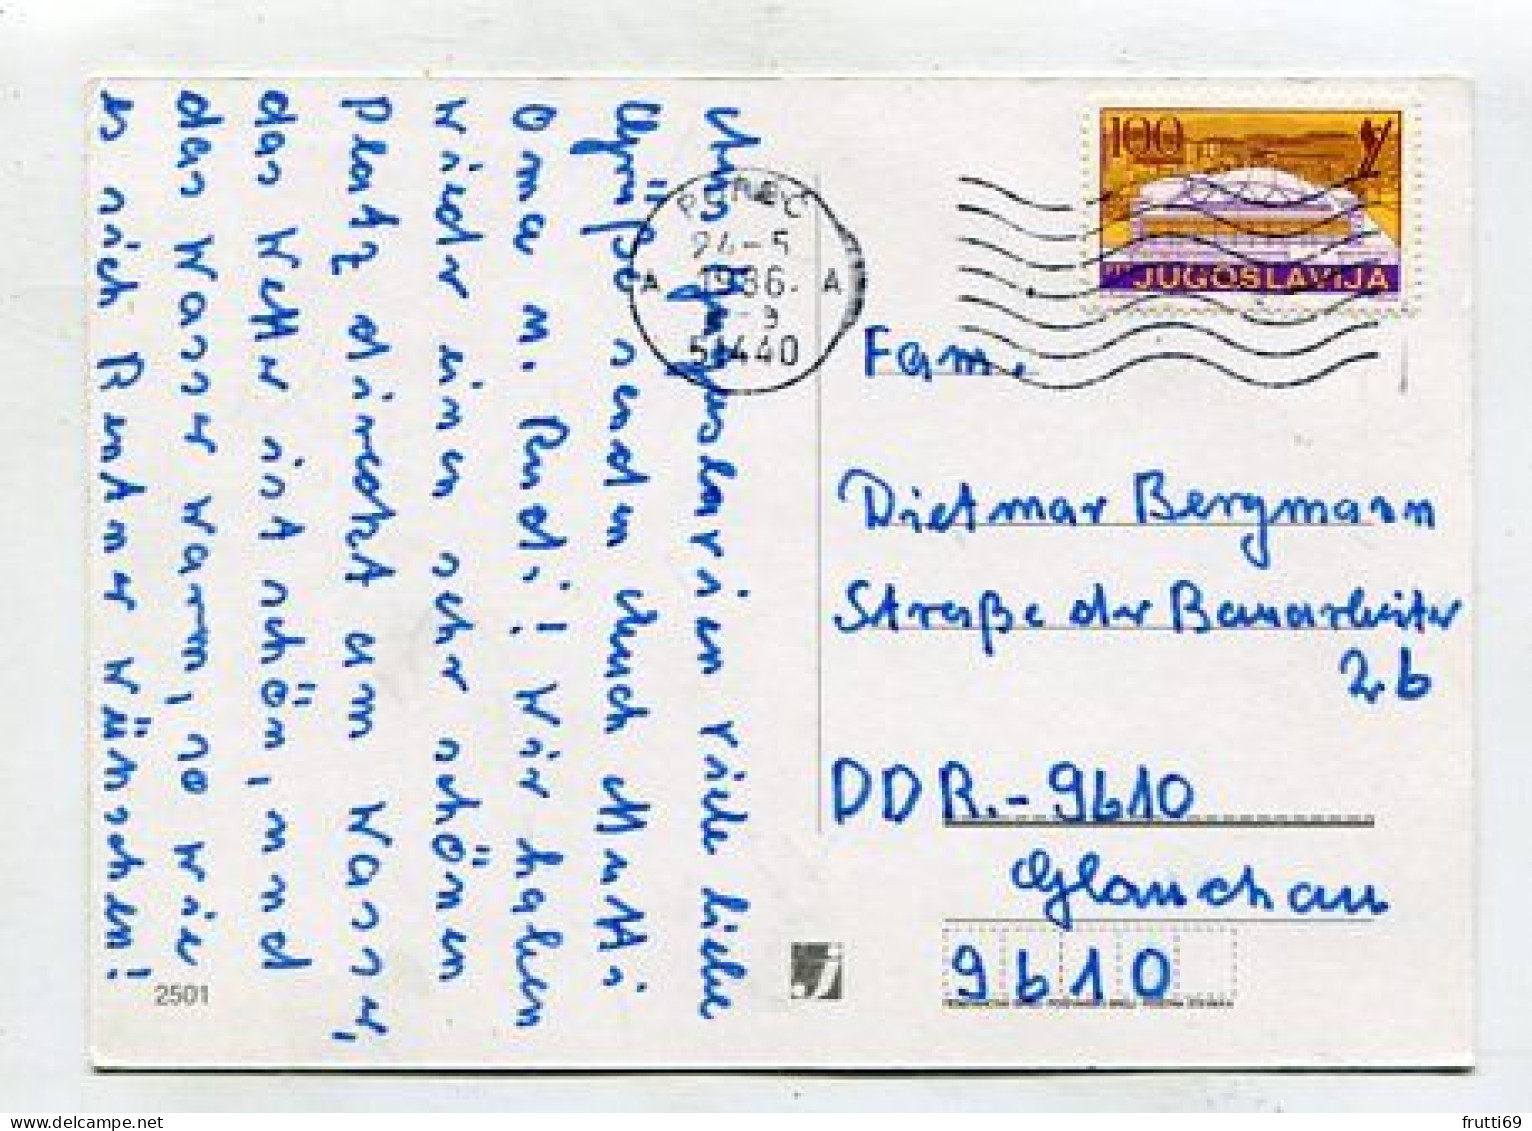 Aus Jugoslavien viele liebe
Grüße senden Euch Mutti
Oma u. Rudi! Wir haben
wieder einen sehr schönen
Platz direckt am Wasser,
das Wetter ist schön, und
das Wasser warm, so wie
es sich Rentner wünschen!
2501
POREČ
24-5
1986.
A A
51440
100
JUGOSLAVIJA
Fam.
Dietmar Bergmann
Straße der Bauarbeiter
2b
DDR.-9610
Glauchau
9610
frutti69